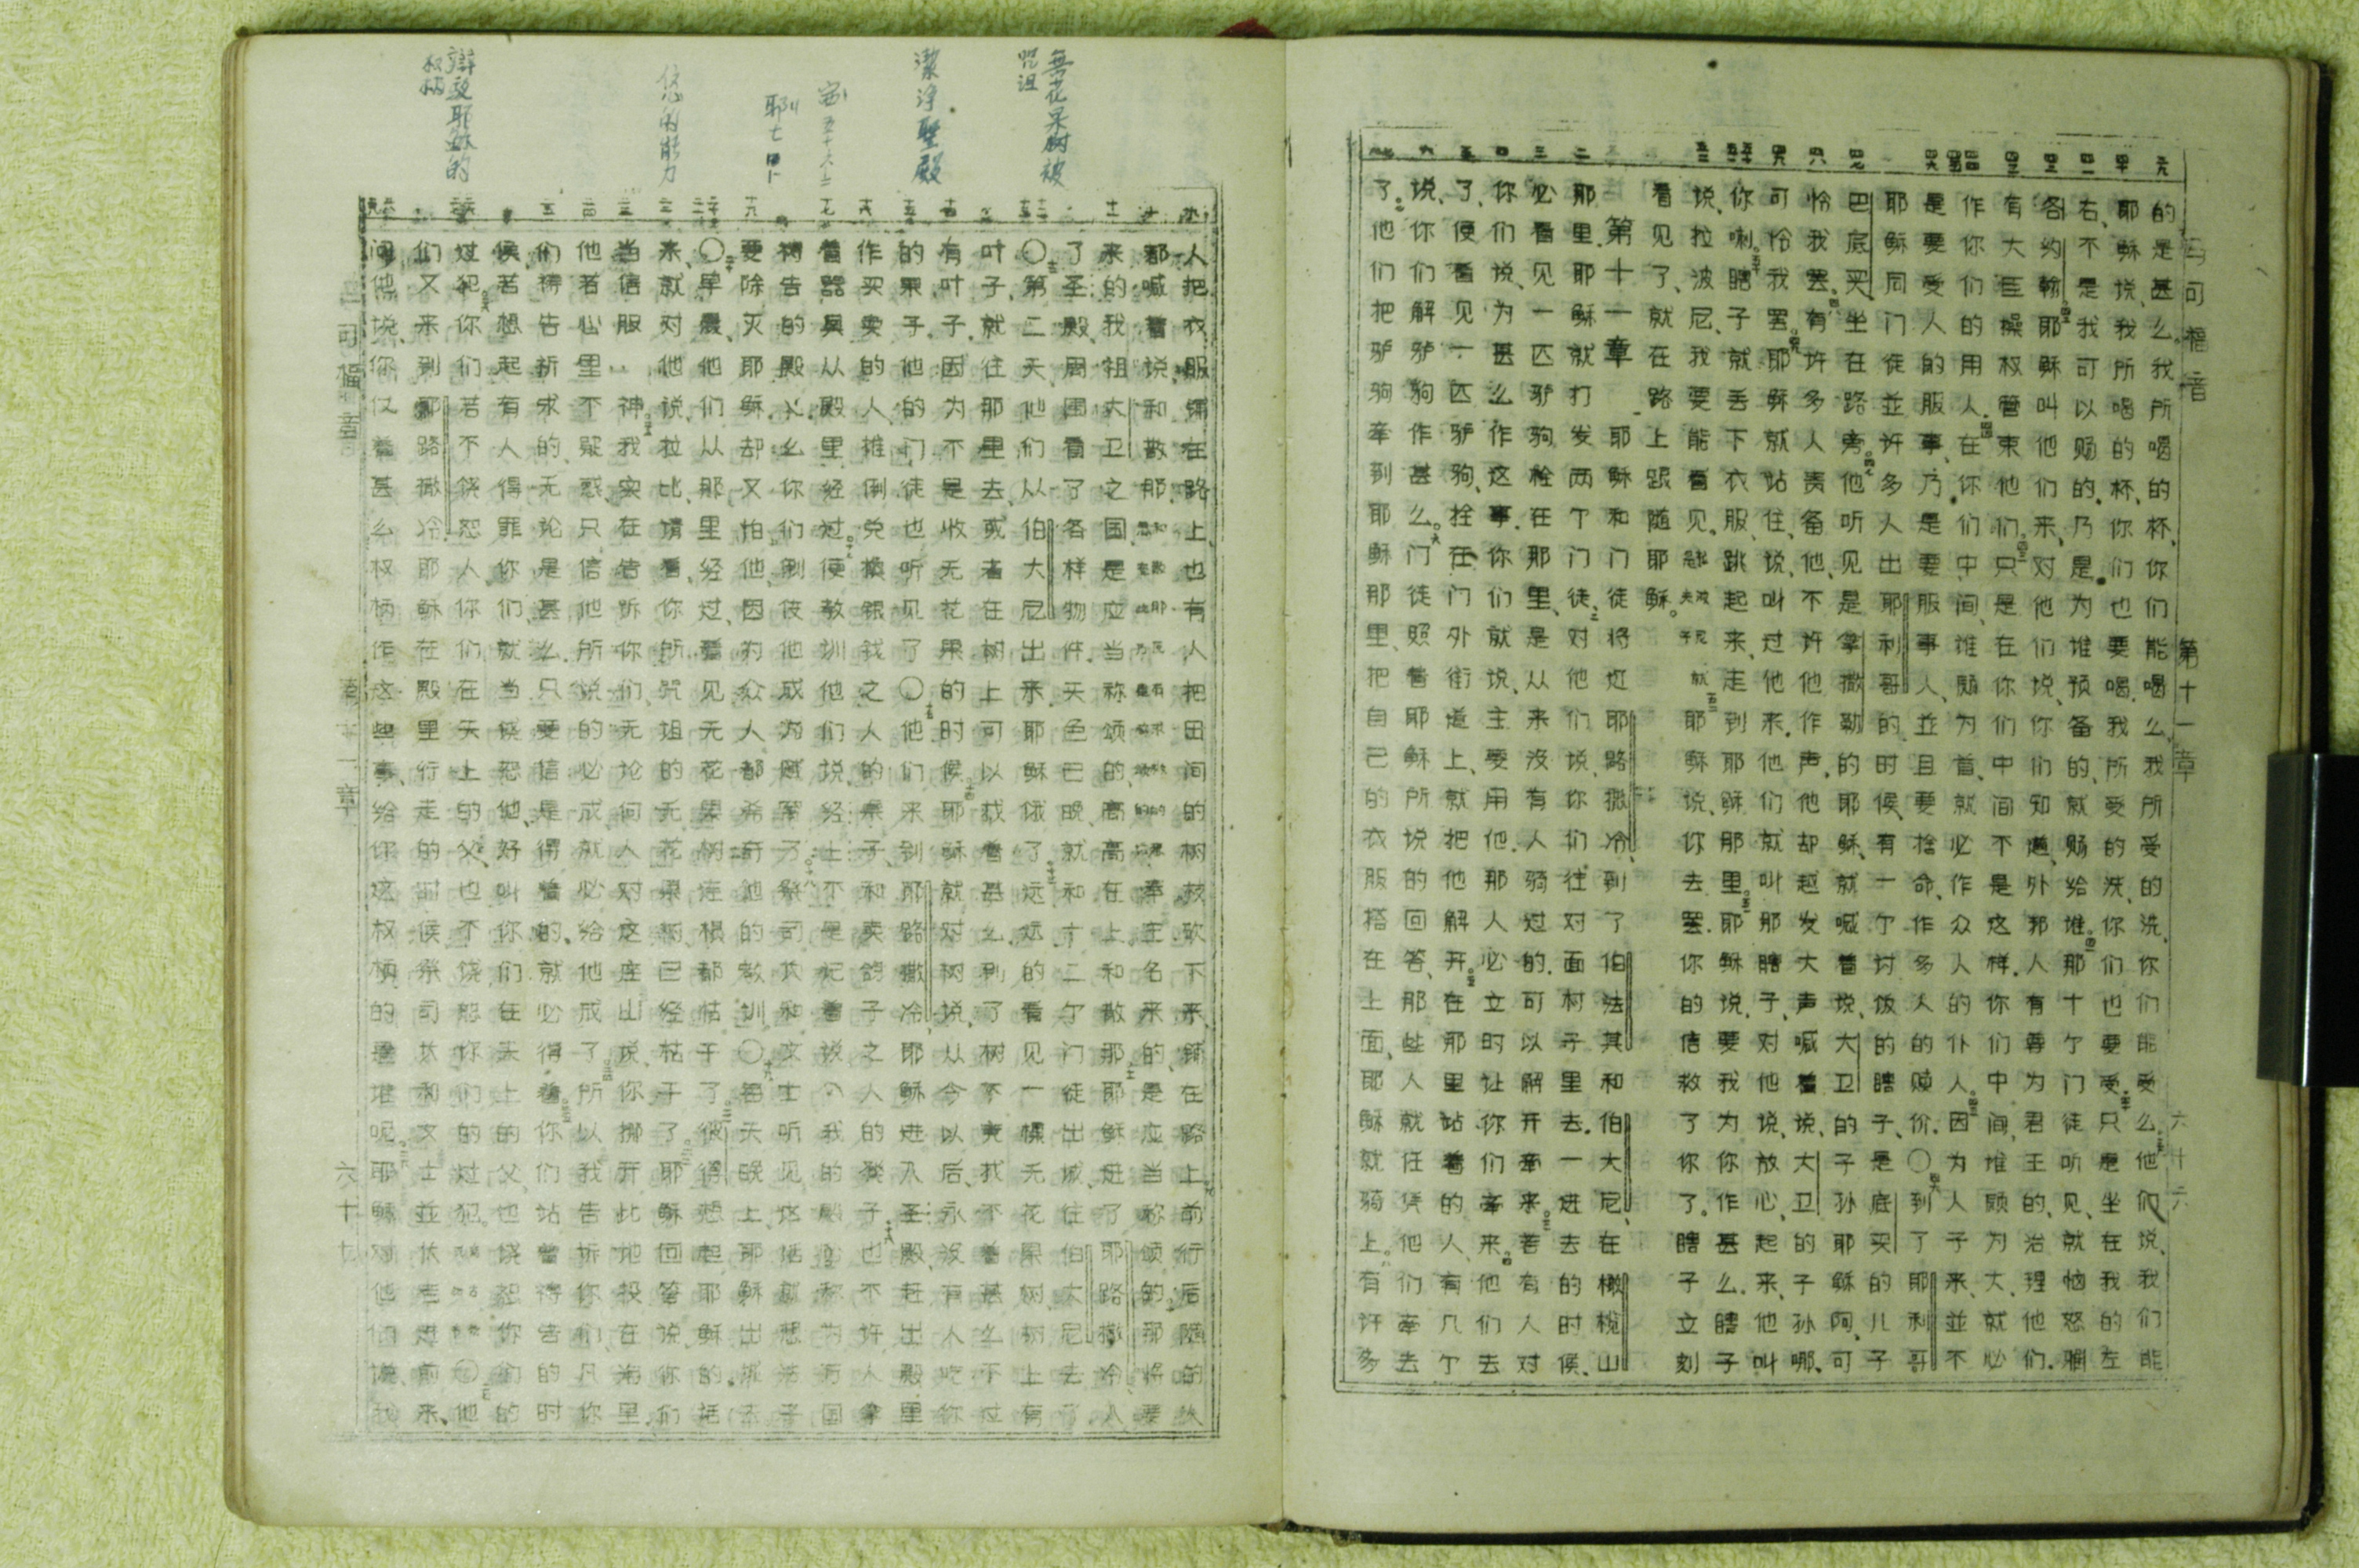 马可福音 第十一章 六十六
的是甚么我所喝的杯、你们能喝么、我所受的洗、你们能受么。他们说、我们能
耶稣说、我所喝的杯、你们也要喝、我所受的洗、你们也要受。只是坐在我的左
右、不是我可以赐的、乃是为谁预备的、就赐给谁。那十个门徒听见、就恼怒雅
各约翰。耶稣叫他们来、对他们说、你们知道、外邦人有尊为君王的、治理他们.
有大臣操权管束他们。只是在你们中间、不是这样。你们中间、谁顾为大、就必
作你们的用人。在你们中间、谁顾为首、就必作众人的仆人。因为人子来、並不
是要受人的服事、乃是要服事人、並且要捨命、作多人的赎价。〇到了耶利哥
耶稣同门徒並许多人出耶利哥的时候、有一个讨饭的瞎子、是底买的儿子
巴底买坐在路旁。他听见是拿撒勒的耶稣、就喊着说、大卫的子孙耶稣阿、可
怜我罢。有许多人责备他、不许他作声、他却越发大声喊着说、大卫的子孙哪、
可怜我罢。耶稣就站住说、叫过他来。他们就叫那瞎子、对他说、放心、起来、他叫
你喇。瞎子就丢下衣服、跳起来、走到耶稣那里。耶稣说、要我为你作甚么、瞎子
说、拉波尼、我要能看见。耶稣说、你去罢、你的信救了你了。瞎子立刻
看见了、就在路上跟随耶稣。
第十一章 耶稣和门徒将近耶路撒冷、到了伯法其和伯大尼、在橄榄山
耶里、耶稣就打发两个门徒、对他们说、你们往对面村子里去.一进去的时候、
必看见一匹驴驹栓在那里、是从来没有人骑过的.可以解开牵来。若有人对
你们说、为甚么作这事.你们就说、主要用他.那人必立时让你们牵来。他们去
了、便看见一匹驴驹、拴在门外街道上、就把他解开。在那里站着的人、有几个
说、你们解驴驹作甚么。门徒照着耶稣所说的回答、那些人就任凭他们牵去
了。他们把驴驹牵到耶稣那里、把自己的衣服搭在上面、耶稣就骑上。有许多
无花果树被咒诅
潔净聖殿
耶七
信的能力
辯駁耶穌的权柄
司福音 第十一章 六十七
人把衣服铺在路上、也有人把田间的树枝砍下来、铺在路上。前行后随的
喊着说、和散那、奉主名来的、是应当称颂的。那将要
来的我祖大卫之国、是应当称颂的、高高在上和散那。耶稣进了耶路撒冷、入
了圣殿、周围看了各样物件.天色已晚、就和十二个门徒出城、往伯大尼去了
〇第二天、他们从伯大尼出来、耶稣饿了。远远的看见一棵无花果树、树上有
叶子、就往那里去、或者在树上可以找着甚么.到了树下、竟找不着甚么、不过
有叶子、因为不是收无花果的时候。耶稣就对树说、从今以后、永没有人吃你
的果子.他的门徒也听见了。〇他们来到耶路撒冷、耶稣进入圣殿、赶出殿里
作买卖的人、推倒兑换银钱之人的桌子、和卖鸽子之人的凳子。也不许人拿
着器具从殿里经过。便教训他们说、经上不是记着说、我的殿必称为万国
祷告的殿么.你们倒使他成为贼窝了。祭司长和文士听见这话、就想法子
要除灭耶稣.却又怕他、因为众人都希奇他的教训。〇每天晚上、耶稣出城去
〇早晨、他们从那里经过、看见无花果树连根都枯干了。彼得想起耶稣的话
来、就对他说、拉比、请看、你所咒诅的无花果树已经枯干了。耶稣回答说、你们
当信服神。我实在告诉你们、无论何人对这座山说、你挪开此地投在海里.
他若心里不疑惑、只信他所说的必成、就必给他成了。所以我告诉你们、凡你
们祷告祈求的、无论是甚么、只要信是得着的、就必得着。你们站着祷告的时
候、若想起有人得罪你们、就当饶恕他、好叫你们在天上的父、也饶恕你们的
过犯。你们若不饶恕人、你们在天上的父、也不饶恕你们的过犯。〇他
们又来到耶路撒冷、耶稣在殿里行走的时候、祭司长和文士並长老进前来、
问他说、你仗着甚么权柄作这些事、给你这权柄的是谁呢。耶稣对他们说、我